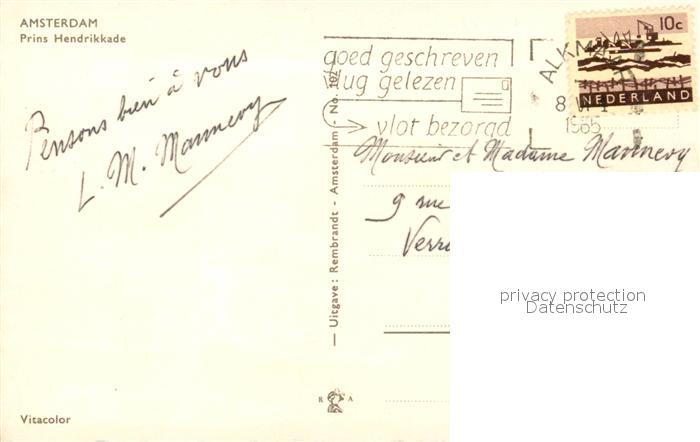 AMSTERDAM
Prins Hendrikkade
Pensons bien à vous
L. M. Mannevy
Vitacolor
— Uitgave: Rembrandt - Amsterdam - No. 102
R A
goed geschreven
vlug gelezen
vlot bezorgd
ALKMAAR
1965
10c
NEDERLAND
Monsieur et Madame Mannevy
9 rue
privacy protection
Datenschutz